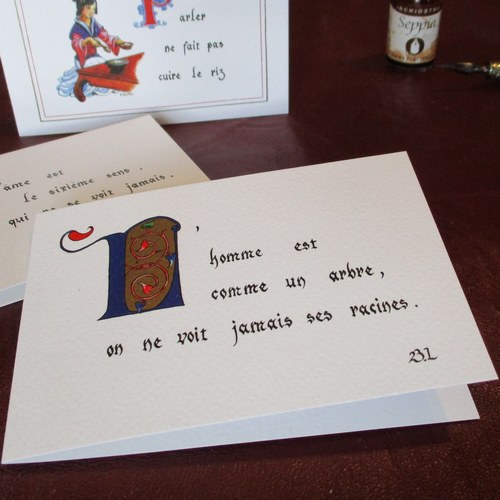 Parler
ne fait pas
cuire le riz
INCHIOSTRO
Seppia
âme est
le sixième sens .
qui ne se voit jamais.
L'
homme est
comme un arbre,
on ne voit jamais ses racines.
B.L